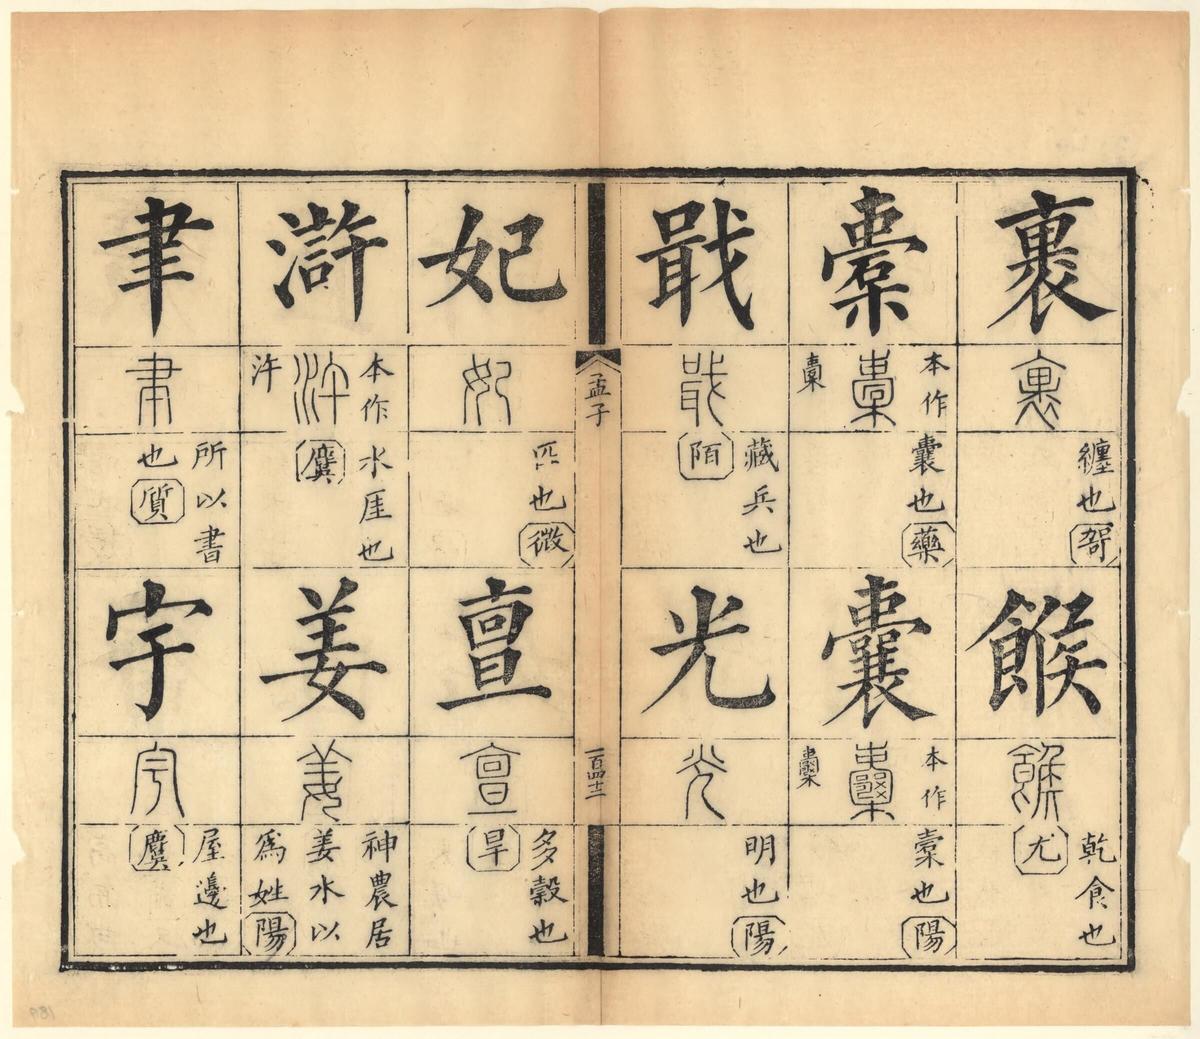 裹
纏也哿
餱
乾食也尤
橐
本作橐
囊也藥
囊
本作囊
橐也陽
戢
藏兵也陌
光
明也陽
孟子
一百四十二
妃
匹也微
亶
多穀也旱
滸
本作汻
水厓也麌
姜
神農居
姜水以
爲姓陽
聿
所以書
也質
宇
屋邊也麌